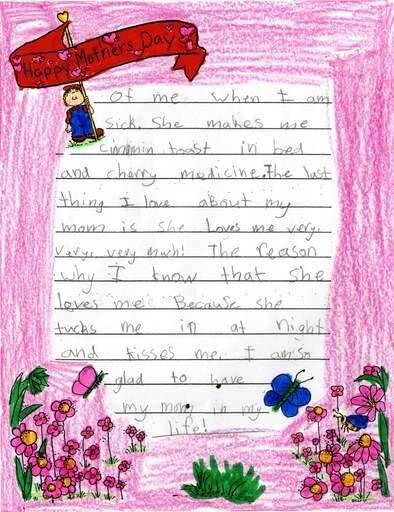 Happy Mothers Day
of me when I am
sick. She makes me
cinnmin toast in bed
and charry medicine. The last
thing I love about my
mom is she loves me very,
very, very much! The reason
why I know that she
loves me Because she
tucks me in at night
and kisses me. I am so
glad to have
my mom in my
life!